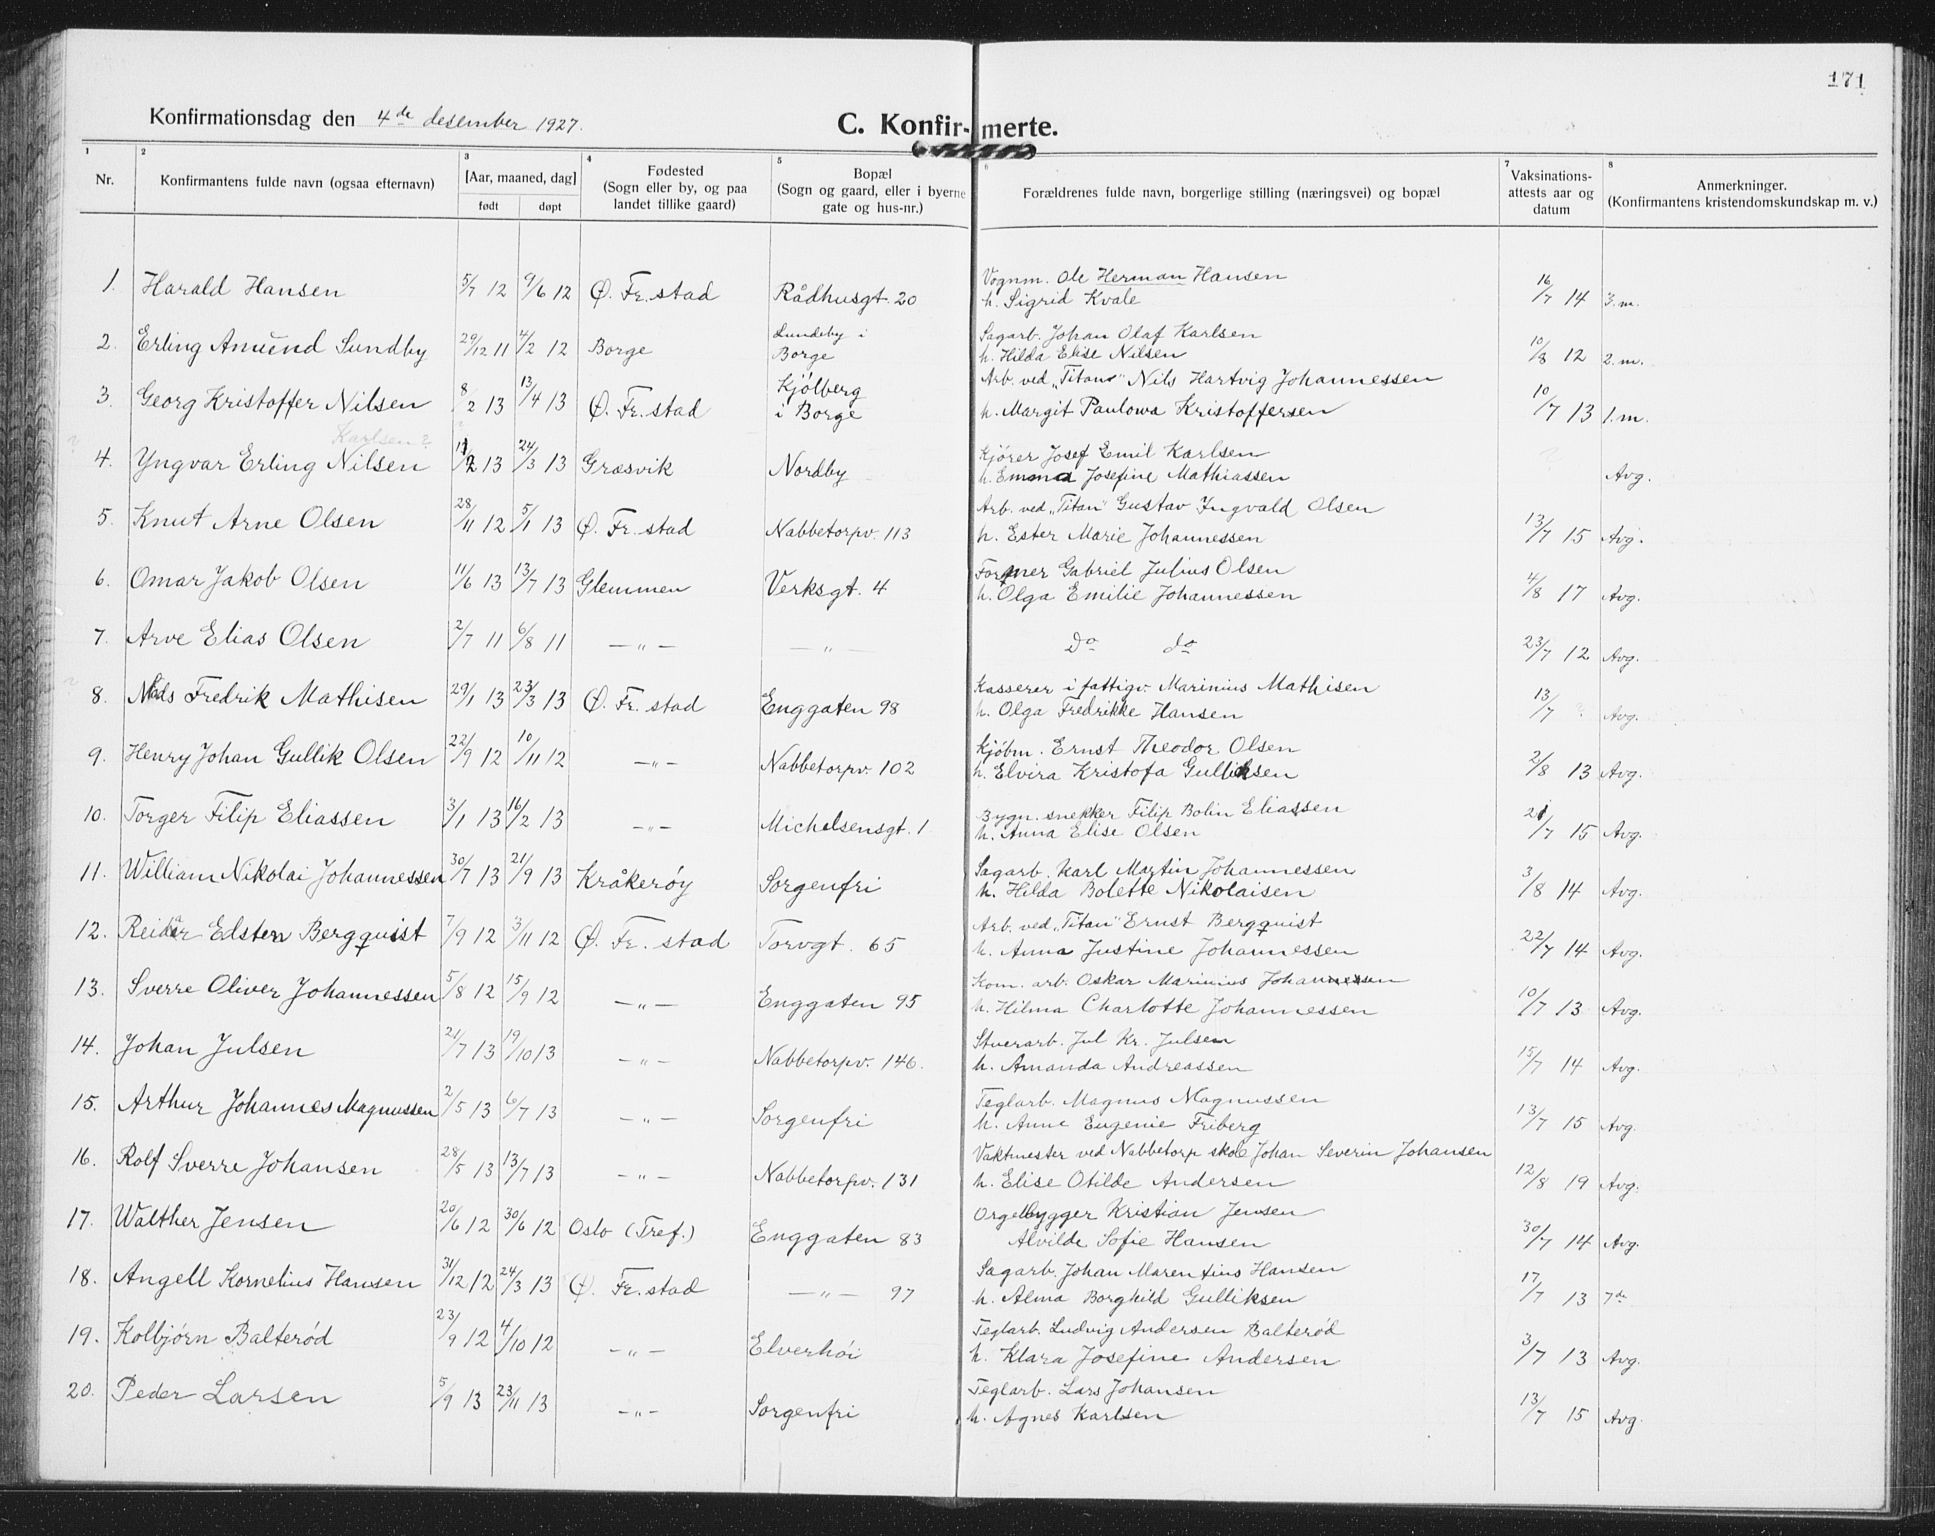 171
Konfirmationsdag den 4de desember 1927.
C. Konfirmerte.
1 2 3 4 5 6 7 8
Nr. Konfirmantens fulde navn (ogsaa efternavn) [Aar, maaned, dag] født døpt Fødested (Sogn eller by, og paa landet tillike gaard) Bopæl (Sogn og gaard, eller i byerne gate og hus-nr.) Forældrenes fulde navn, borgerlige stilling (næringsvei) og bopæl Vaksinations-attests aar og datum Anmerkninger. (Konfirmantens kristendomskundskap m. v.)
1. Harald Hansen 5/7 12 9/6 12 Ø. Fr. stad Rådhusgt. 20 Vognm. Ole Herman Hansen 16/7 14 3. m.
h. Sigrid Kvale
2. Erling Amund Sundby 29/12 11 4/2 12 Borge Lundeby i Borge Sagarb. Johan Olaf Karlsen 10/8 12 2. m.
h. Hilda Elise Nilsen
3. Georg Kristoffer Nilsen 8/2 13 13/4 13 Ø. Fr. stad Kjölberg i Borge Arb. ved "Titan" Nils Hartvig Johannessen 10/7 13 1. m.
h. Margit Paulowa Kristoffersen
Karlsen?
4. Yngvar Erling Nilsen 13 24/3 13 Græsvik Nordby Kjörer Josef Emil Karlsen Avg.
h. Emma Josefine Mathiassen
5. Knut Arne Olsen 28/11 12 5/1 13 Ø. Fr. stad Nabbetorpv. 113 Arb. ved "Titan" Gustav Ingvald Olsen 13/7 15 Avg.
h. Ester Marie Johannessen
6. Omar Jakob Olsen 11/6 13 13/7 13 Glemmen Verksgt. 4 Former Gabriel Julius Olsen 4/8 17 Avg.
h. Olga Emilie Johannessen
7. Arve Elias Olsen 2/7 11 6/8 11 — " — — " — Do do 23/7 12 Avg.
8. Fredrik Mathisen 29/1 13 23/3 13 Ø. Fr. stad Enggaten 98 Kasserer i fattigv. Marinius Mathisen 13/7 ? Avg.
h. Olga Fredrikke Hansen
9. Henry Johan Gullik Olsen 22/9 12 10/11 12 — " — Nabbetorpv. 102 Kjöbm. Ernst Theodor Olsen 2/8 13 Avg.
h. Elvira Kristofa Gulliksen
10. Torger Filip Eliassen 3/1 13 16/2 13 — " — Michelsensgt. 1 Bygn. snekker Filip Bolin Eliassen 21/7 15 Avg.
h. Anna Elise Olsen
11. William Nikolai Johannessen 30/7 13 21/9 13 Kråkeröy Sorgenfri Sagarb. Karl Martin Johannessen 3/8 14 Avg.
h. Hilda Bolette Nikolaisen
12. Reidar Edsten Bergquist 7/9 12 3/11 12 Ø. Fr. stad Torvgt. 65 Arb. ved "Titan" Ernst Bergquist 22/7 14 Avg.
h. Anna Justine Johannessen
13. Sverre Oliver Johannessen 5/8 12 15/9 12 — " — Enggaten 95 Kom. arb. Oskar Marinius Johannessen 10/7 13 Avg.
h. Hilma Charlotte Johannessen
14. Johan Julsen 21/7 13 19/10 13 — " — Nabbetorpv. 146. Stuerarb. Jul Kr. Julsen 15/7 14 Avg.
h. Amanda Andreassen
15. Arthur Johannes Magnussen 2/5 13 6/7 13 — " — Sorgenfri Teglarb. Magnus Magnussen 13/7 15 Avg.
h. Anne Eugenie Friberg
16. Rolf Sverre Johansen 28/5 13 13/7 13 — " — Nabbetorpv. 131 Vaktmester ved Nabbetorp skole Johan Severin Johansen 12/8 19 Avg.
h. Elise Otilde Andersen
17. Walther Jensen 20/6 12 30/6 12 Oslo (Tref.) Enggaten 83 Orgelbygger Kristian Jensen 30/7 14 Avg.
Alvilde Sofie Hansen
18. Angell Kornelius Hansen 31/12 12 24/3 13 Ø. Fr. stad — " — 97 Sagarb. Johan Marentius Hansen 17/7 13 7de
h. Alma Borghild Gulliksen
19. Kolbjörn Balteröd 23/9 12 4/10 12 — " — Elverhöi Teglarb. Ludvig Andersen Balteröd 3/7 13 Avg.
h. Klara Josefine Andersen
20. Peder Larsen 5/9 13 23/11 13 — " — Sorgenfri Teglarb. Lars Johansen 13/7 15 Avg.
h. Agnes Karlsen